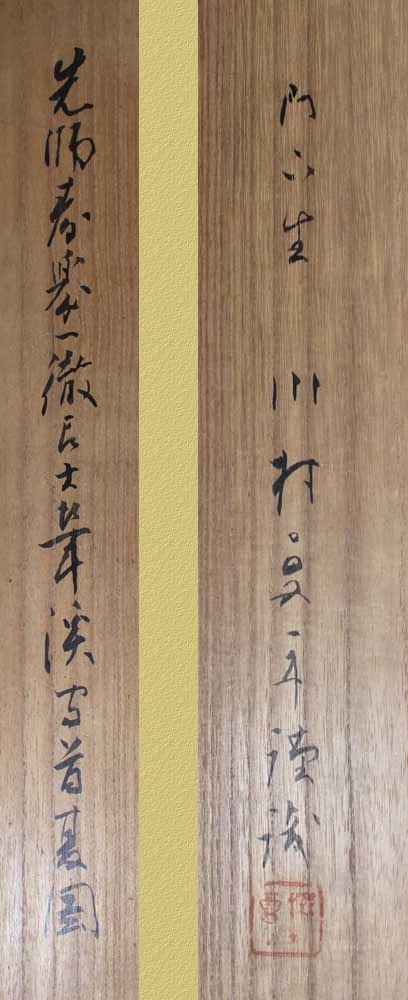 先師春擧一徹居士筆溪首夏圖
門下生 川村曼舟謹識